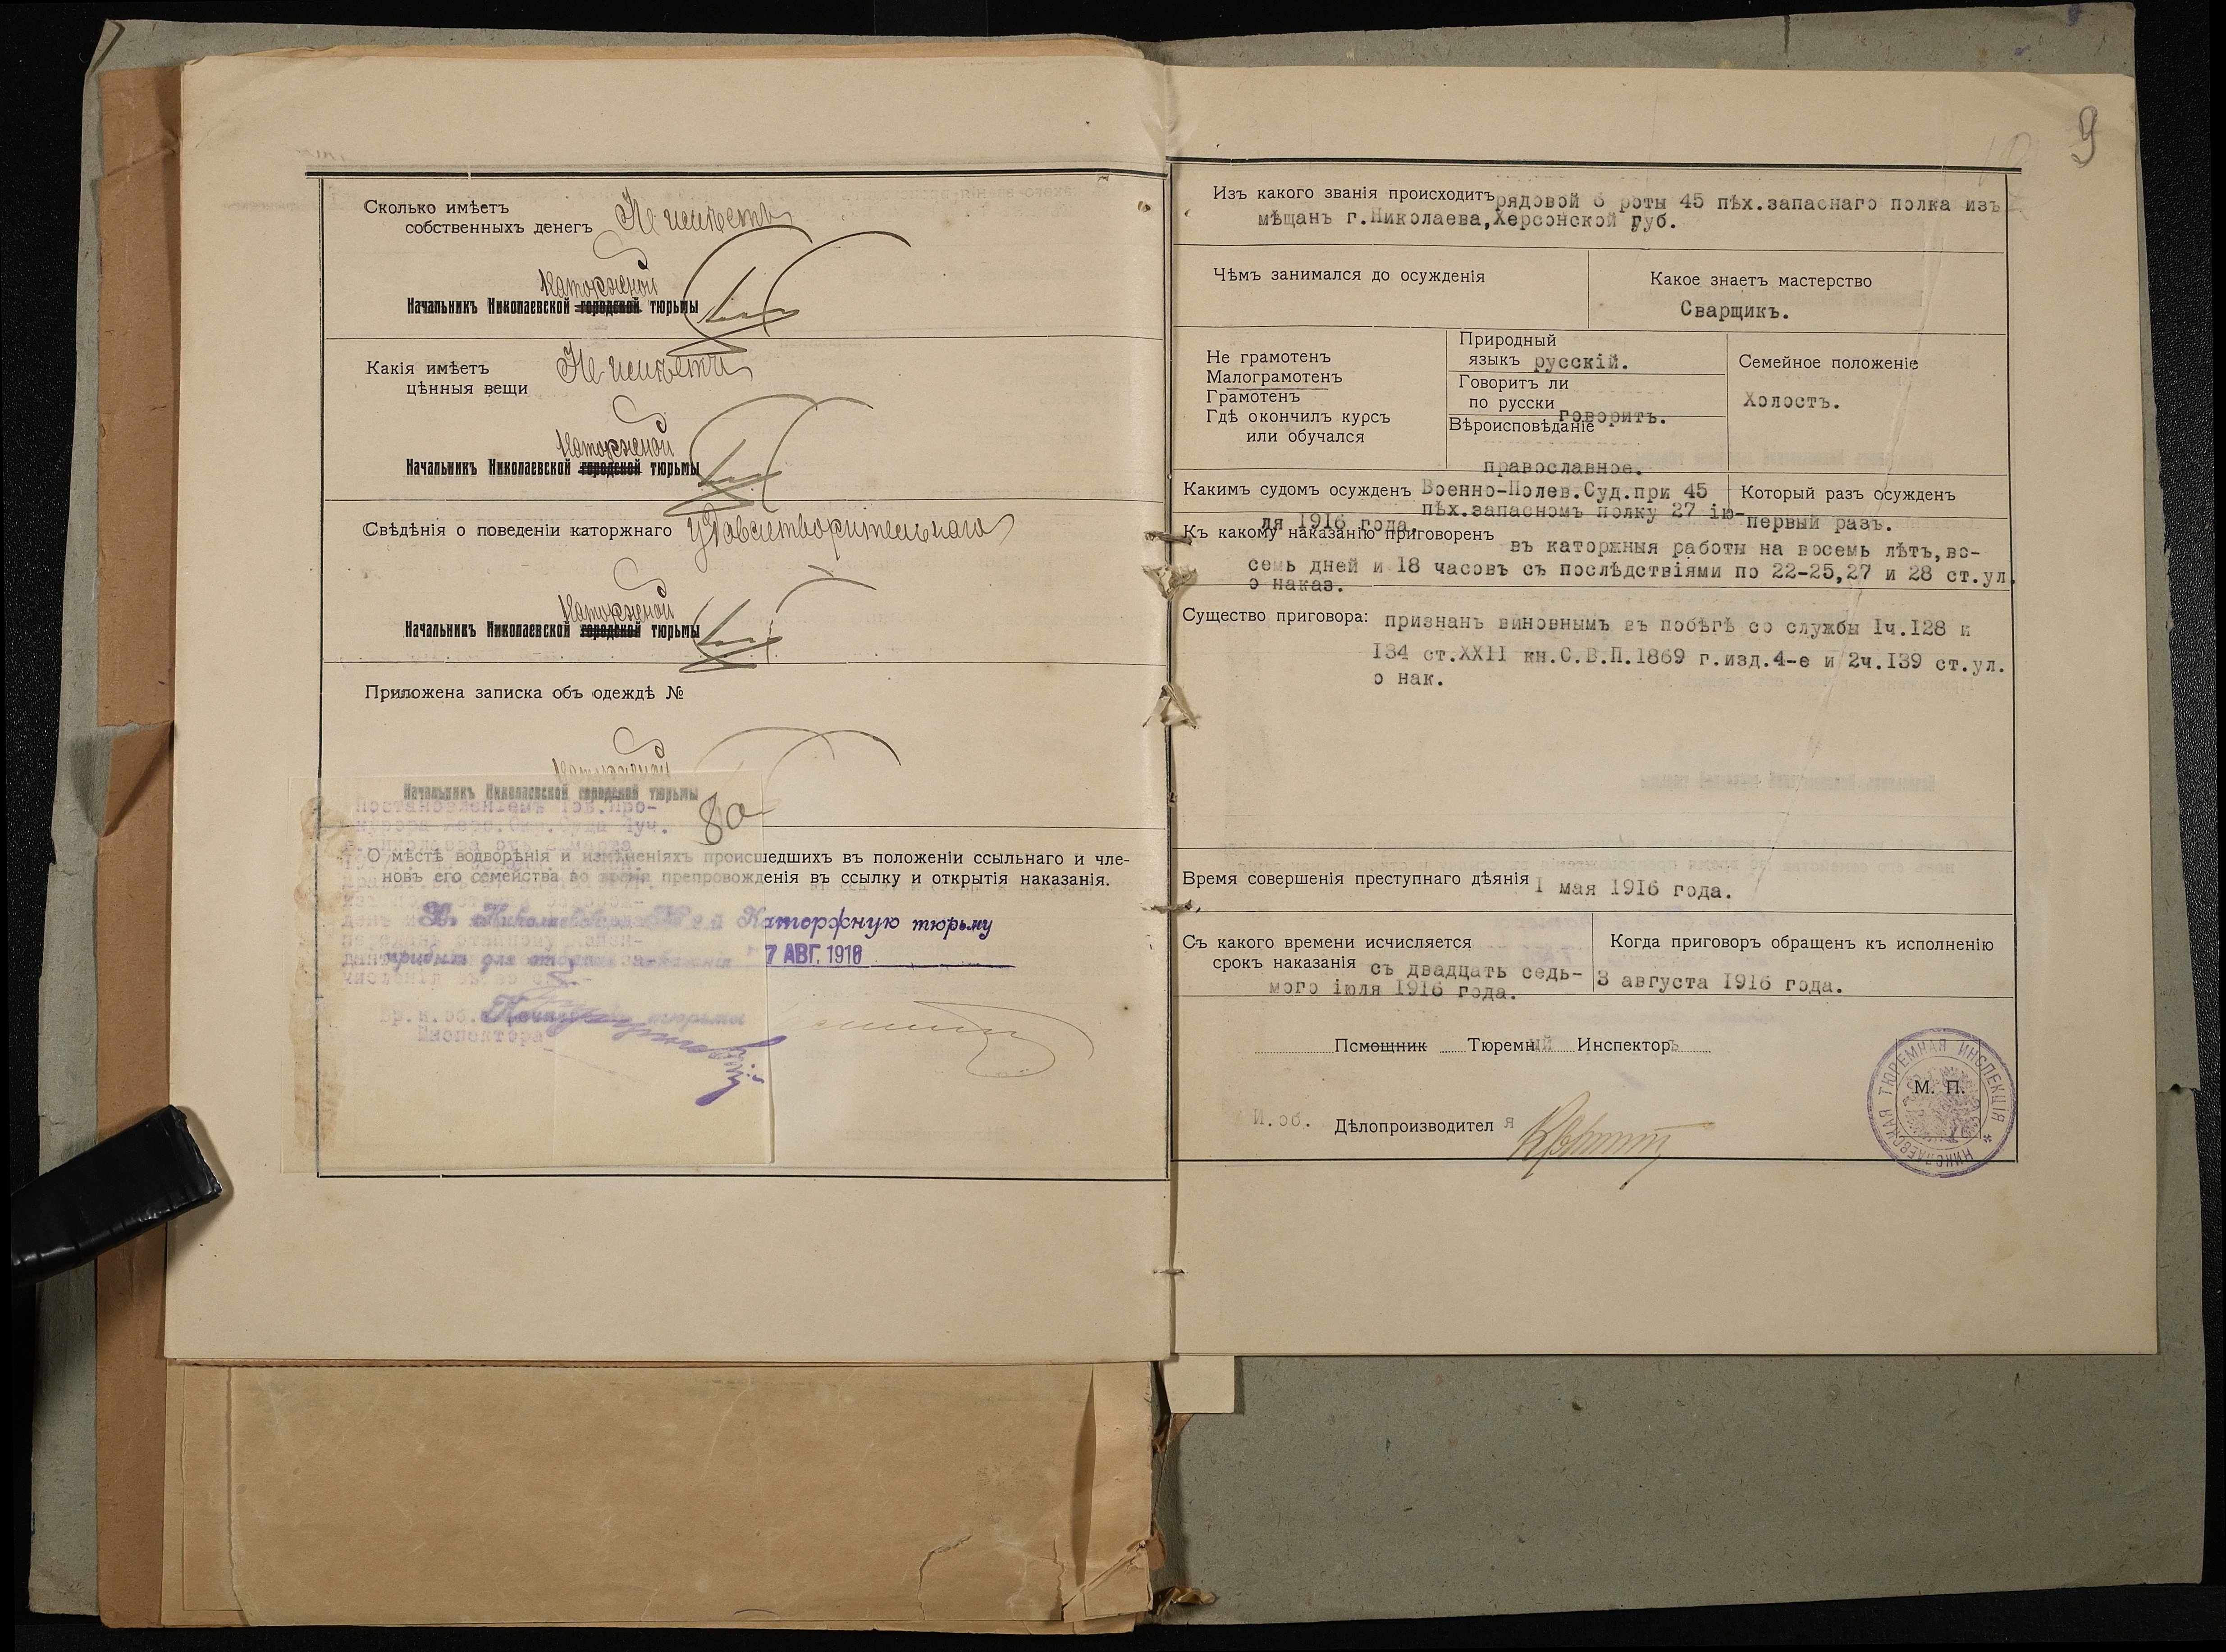 Сколько имѣетъ
собственныхъ денегъ Не имѣетъ
Каторжной
Начальникъ Николаевской городской тюрьмы
Какія имѣетъ
цѣнныя вещи Не имѣетъ
Каторжной
Начальникъ Николаевской городской тюрьмы
Свѣдѣнія о поведеніи каторжнаго удовлетворительнаго
Каторжной
Начальникъ Николаевской городской тюрьмы
Приложена записка объ одеждѣ №
Каторжной
Начальникъ Николаевской городской тюрьмы
Постановленіемъ Тов. Про-
80
О мѣстѣ водворѣнія и измѣненіяхъ происшедшихъ въ положеніи ссыльнаго и чле-
новъ его семейства во время препровожденія въ ссылку и открытія наказанія.
Въ Николаевскую Каторжную тюрьму
прибылъ для 7 АВГ. 1916
Вр. и. об.
тюрьмы
Инспектора
9
Изъ какого званія происходитъ рядовой 6 роты 45 пѣх.запаснаго полка изъ
мѣщанъ г.Николаева,Херсонской губ.
Чѣмъ занимался до осужденія
Какое знаетъ мастерство
Сварщикъ.
Не грамотенъ
Малограмотенъ
Грамотенъ
Гдѣ окончилъ курсъ
или обучался
Природный
языкъ русскій.
Говоритъ ли
по русски говоритъ.
Вѣроисповѣданіе
православное.
Семейное положеніе
Холостъ.
Какимъ судомъ осужденъ Военно-Полев.Суд.при 45
пѣх.запасномъ полку 27 ію-
ля 1916 года.
Который разъ осужденъ
первый разъ.
Къ какому наказанію приговоренъ
въ каторжныя работы на восемь лѣтъ,во-
семь дней и 18 часовъ съ послѣдствіями по 22-25,27 и 28 ст.ул.
о наказ.
Существо приговора: признанъ виновнымъ въ побѣгѣ со службы 1ч.128 и
134 ст.XXII кн.С.В.П.1869 г.изд.4-е и 2ч.139 ст.ул.
о нак.
Время совершенія преступнаго дѣянія 1 мая 1916 года.
Съ какого времени исчисляется
срокъ наказанія съ двадцать седь-
мого іюля 1916 года.
Когда приговоръ обращенъ къ исполненію
3 августа 1916 года.
Помощник Тюремный Инспекторъ
И.об. Дѣлопроизводителя
М. П.
НИКОЛАЕВСКАЯ ТЮРЕМНАЯ ИНСПЕКЦІЯ